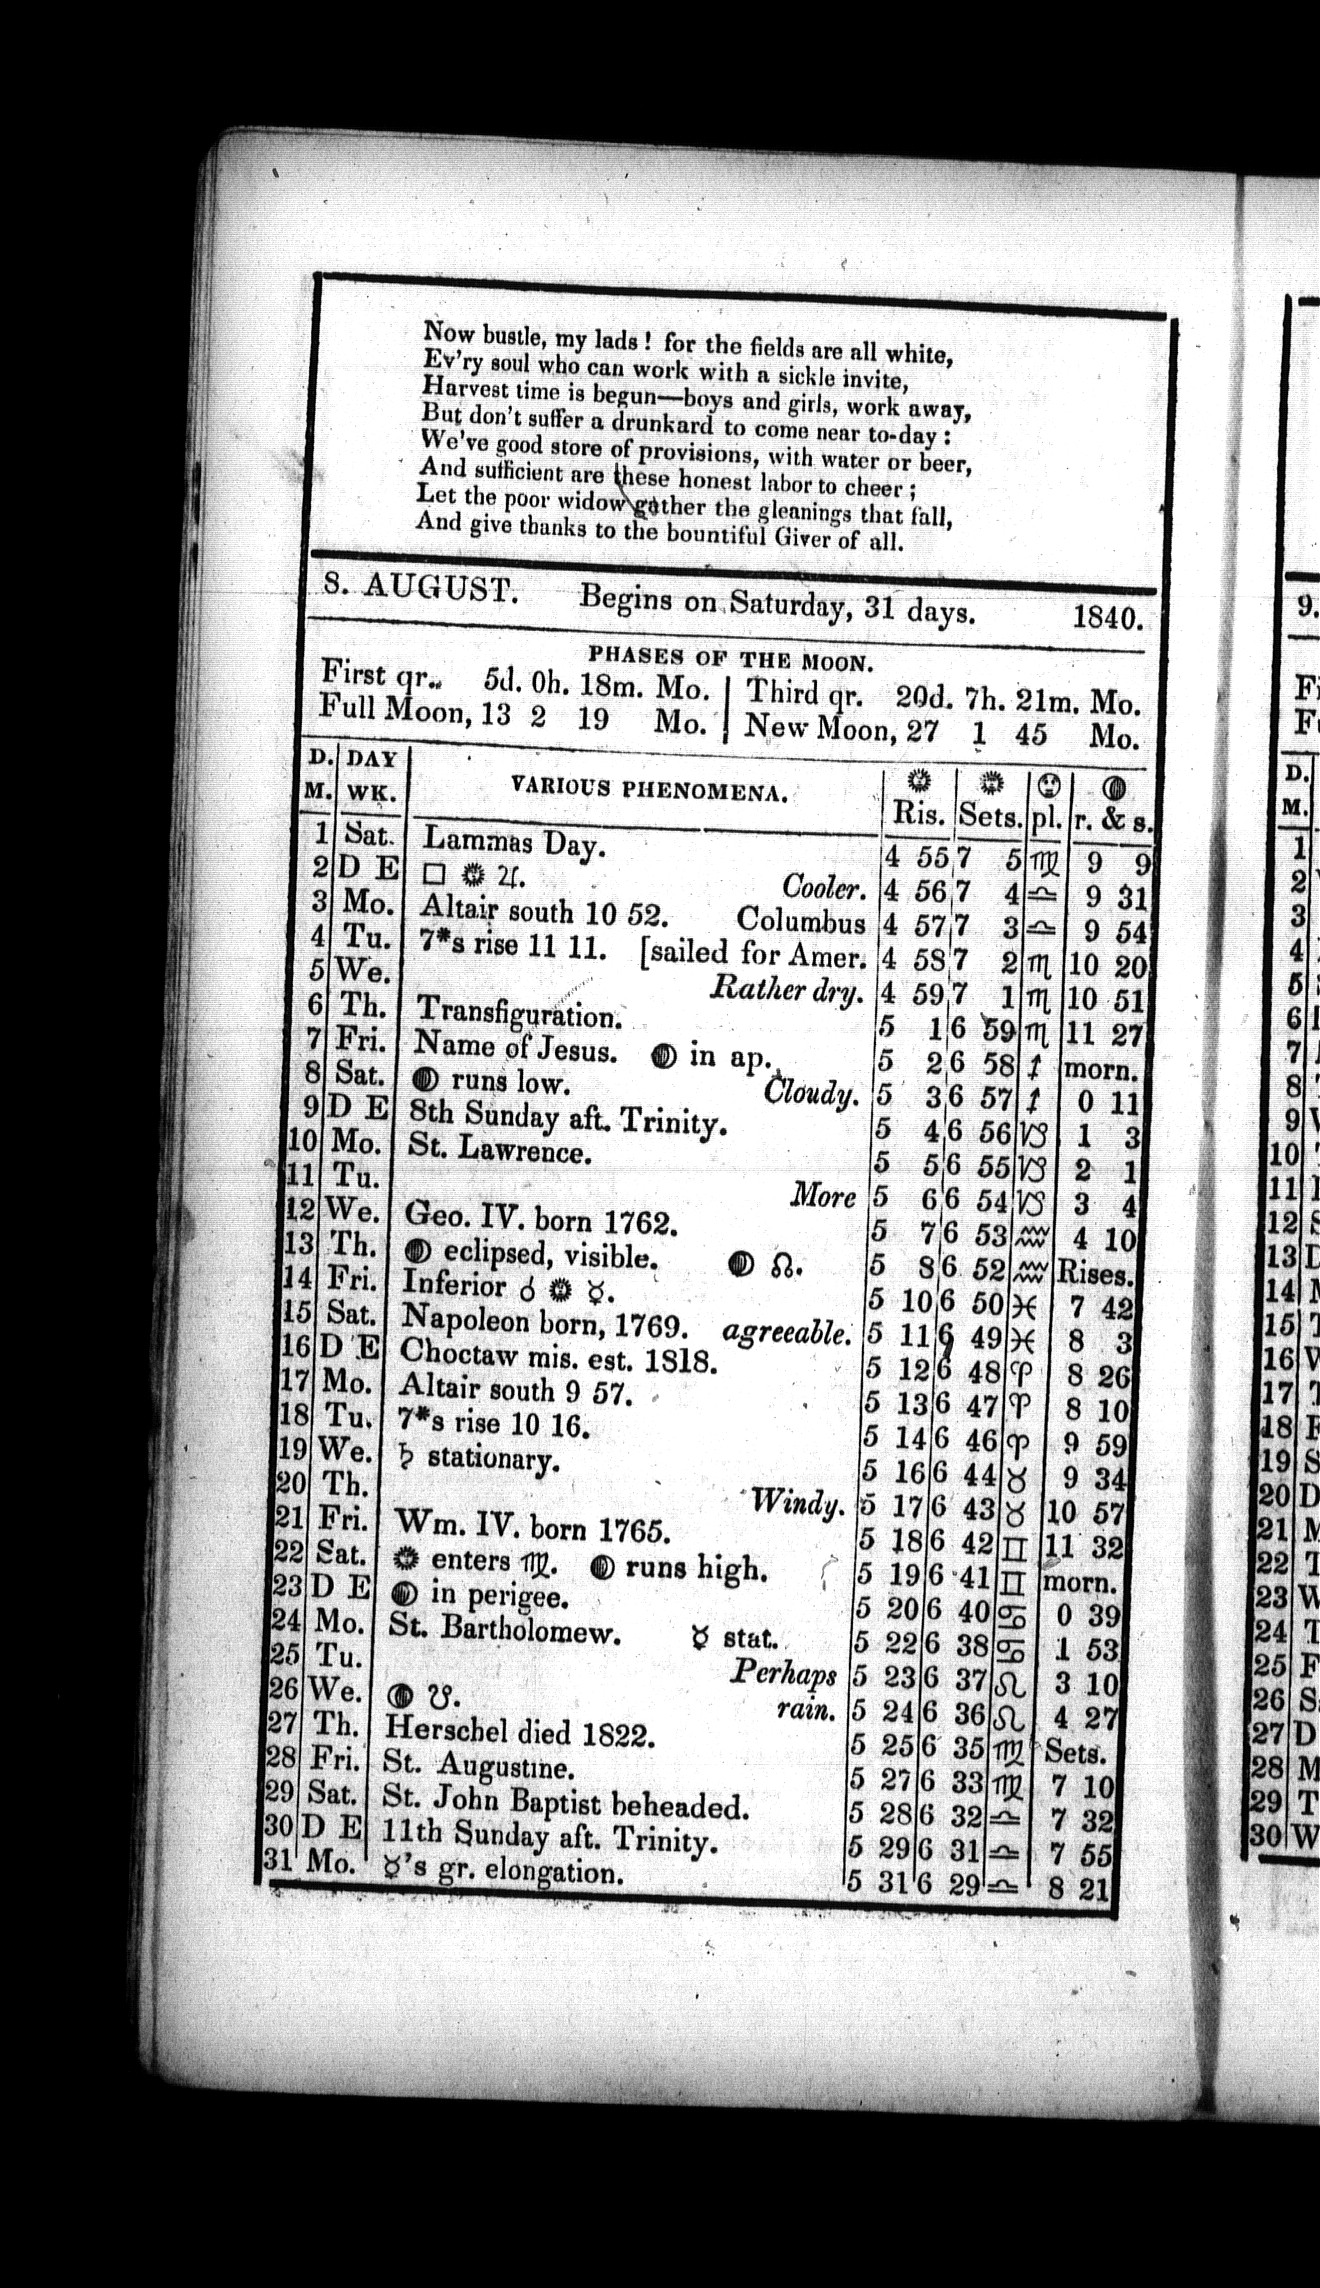 Now bustle, my lads! for the fields are all white,
Ev'ry soul who can work with a sickle invite,
Harvest time is begun—boys and girls, work away,
But don't suffer a drunkard to come near to-day:
We've good store of provisions, with water or beer,
And sufficient are these honest labor to cheer;
Let the poor widow gather the gleanings that fall,
And give thanks to the bountiful Giver of all.
8. AUGUST. Begins on Saturday, 31 days. 1840.
PHASES OF THE MOON.
First qr.. 5d. 0h. 18m. Mo. | Third qr. 20d. 7h. 21m. Mo.
Full Moon, 13 2 19 Mo. | New Moon, 27 1 45 Mo.
D. M. DAY WK. VARIOUS PHENOMENA. Ris. Sets. pl. r. & s.
1 Sat. Lammas Day. 4 55 7 5 ♍ 9 9
2 D E □ ☀ ♃. Cooler. 4 56 7 4 ♎ 9 31
3 Mo. Altair south 10 52. Columbus 4 57 7 3 ♎ 9 54
4 Tu. 7*s rise 11 11. [sailed for Amer. 4 58 7 2 ♏ 10 20
5 We. Rather dry. 4 59 7 1 ♏ 10 51
6 Th. Transfiguration. 5 1 6 59 ♏ 11 27
7 Fri. Name of Jesus. ☽ in ap. 5 2 6 58 ♐ morn.
8 Sat. ☽ runs low. Cloudy. 5 3 6 57 ♐ 0 11
9 D E 8th Sunday aft. Trinity. 5 4 6 56 ♑ 1 3
10 Mo. St. Lawrence. 5 5 6 55 ♑ 2 1
11 Tu. More 5 6 6 54 ♑ 3 4
12 We. Geo. IV. born 1762. 5 7 6 53 ♒ 4 10
13 Th. ☽ eclipsed, visible. ☽ ☊. 5 8 6 52 ♒ Rises.
14 Fri. Inferior ☌ ☀ ☿. 5 10 6 50 ♓ 7 42
15 Sat. Napoleon born, 1769. agreeable. 5 11 6 49 ♓ 8 3
16 D E Choctaw mis. est. 1818. 5 12 6 48 ♈ 8 26
17 Mo. Altair south 9 57. 5 13 6 47 ♈ 8 10
18 Tu. 7*s rise 10 16. 5 14 6 46 ♈ 9 59
19 We. ♄ stationary. 5 16 6 44 ♉ 9 34
20 Th. Windy. 5 17 6 43 ♉ 10 57
21 Fri. Wm. IV. born 1765. 5 18 6 42 ♊ 11 32
22 Sat. ☀ enters ♍. ☽ runs high. 5 19 6 41 ♊ morn.
23 D E ☽ in perigee. 5 20 6 40 ♋ 0 39
24 Mo. St. Bartholomew. ☿ stat. 5 22 6 38 ♋ 1 53
25 Tu. Perhaps 5 23 6 37 ♌ 3 10
26 We. ☽ ☋. rain. 5 24 6 36 ♌ 4 27
27 Th. Herschel died 1822. 5 25 6 35 ♍ Sets.
28 Fri. St. Augustine. 5 27 6 33 ♍ 7 10
29 Sat. St. John Baptist beheaded. 5 28 6 32 ♎ 7 32
30 D E 11th Sunday aft. Trinity. 5 29 6 31 ♎ 7 55
31 Mo. ☿'s gr. elongation. 5 31 6 29 ♎ 8 21
9.
D.
M.
1
2
3
4
5
6
7
8
9
10
11
12
13
14
15
16
17
18
19
20
21
22
23
24
25
26
27
28
29
30